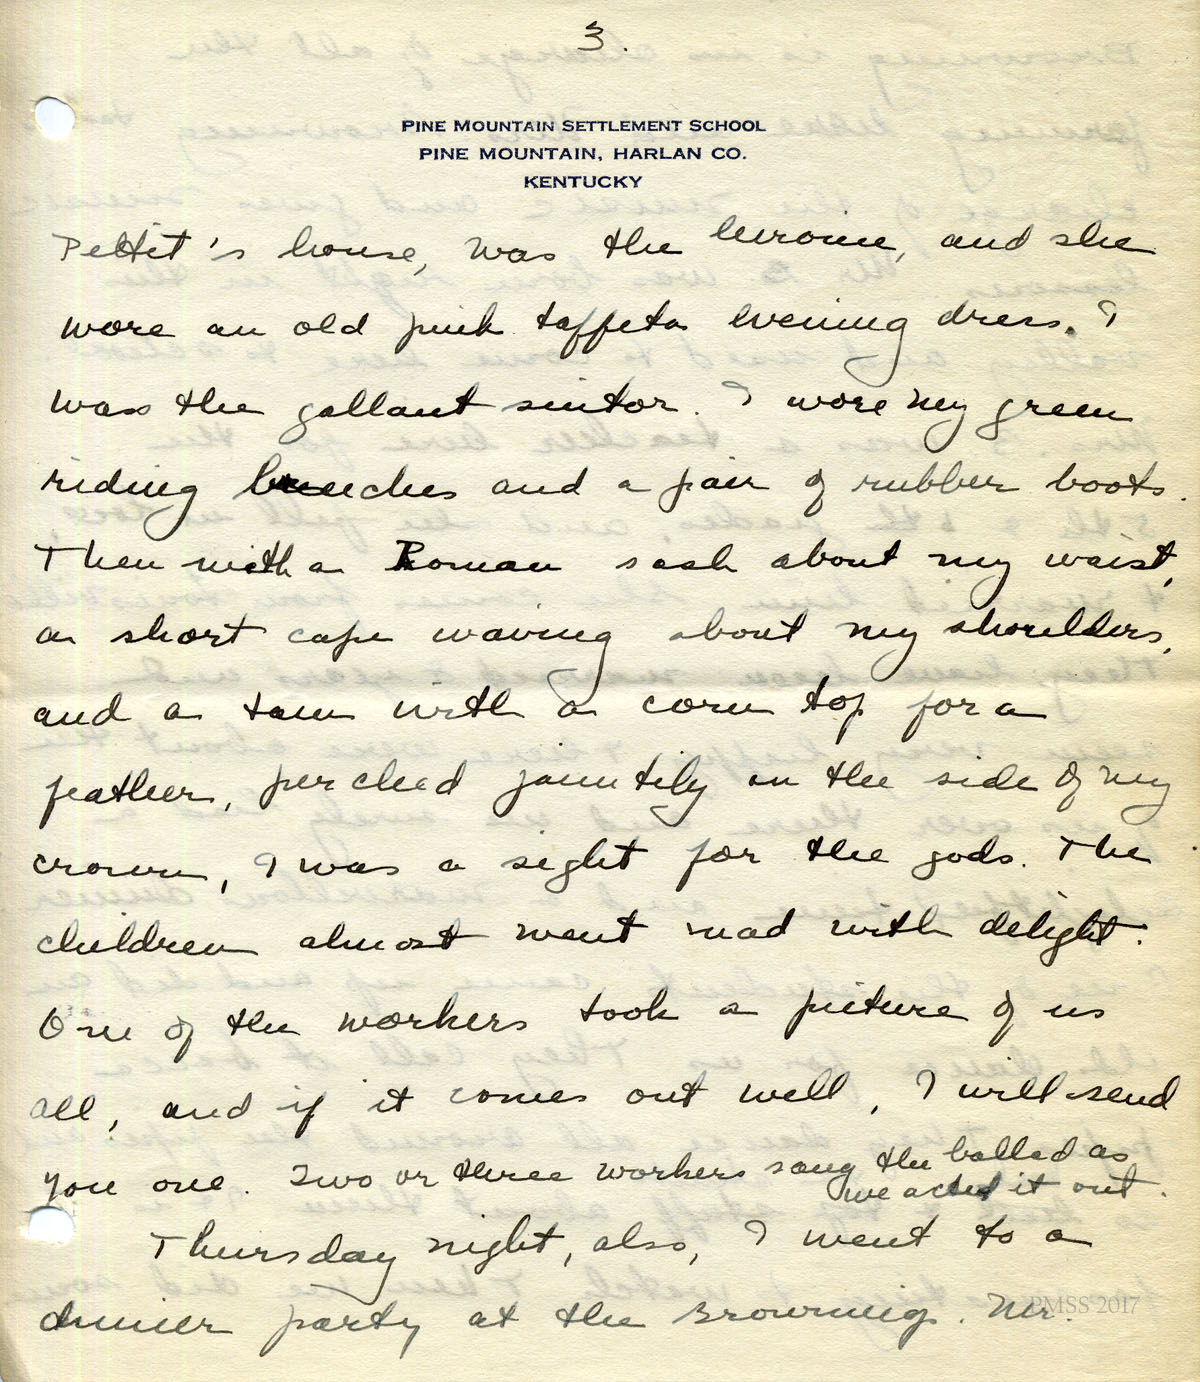 3.
PINE MOUNTAIN SETTLEMENT SCHOOL
PINE MOUNTAIN, HARLAN CO.
KENTUCKY
Pettit's house, was the heroine, and she
wore an old pink taffeta evening dress. I
was the gallant suitor. I wore my green
riding breeches and a pair of rubber boots.
Then with a Roman sash about my waist,
a short cape waving about my shoulders,
and a tam with a corn top for a
feather, perched jauntily on the side of my
crown, I was a sight for the gods. The
children almost went mad with delight.
One of the workers took a picture of us
all, and if it comes out well, I will send
you one. Two or three workers sang the ballad as
we acted it out.
Thursday night, also, I went to a
dinner party at the Brownings. Mr.
PMSS 2017